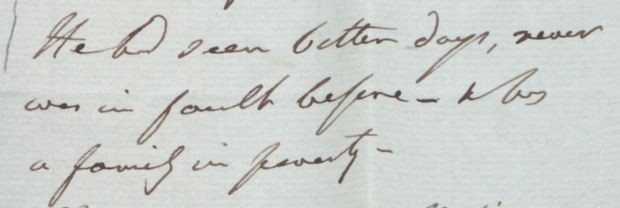 He had seen better days, never
was in fault before – & has
a family in poverty –